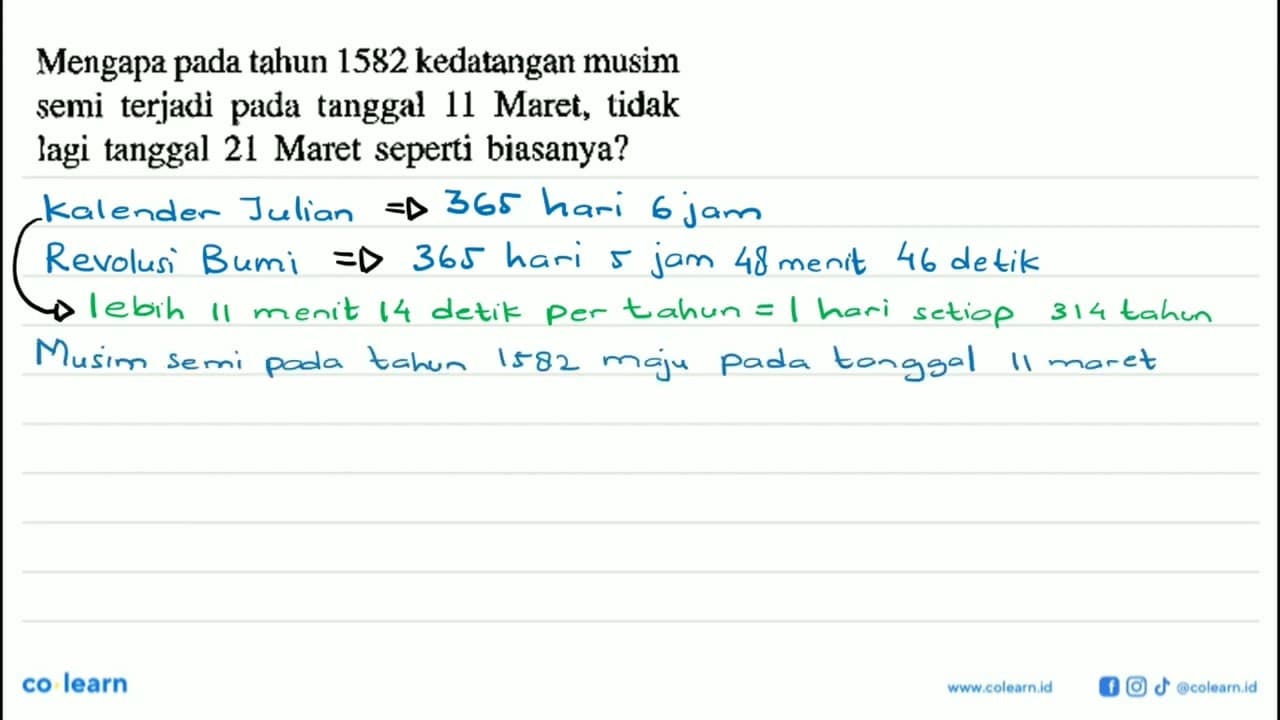 Mengapa pada tahun 1582 kedatangan musim
semi terjadi pada tanggal 11 Maret, tidak
lagi tanggal 21 Maret seperti biasanya?
Kalender Julian => 365 hari 6 jam
Revolusi Bumi => 365 hari 5 jam 48 menit 46 detik
lebih 11 menit 14 detik per tahun = 1 hari setiap 314 tahun
Musim semi pada tahun 1582 maju pada tanggal 11 maret
co learn
www.colearn.id
@colearn.id